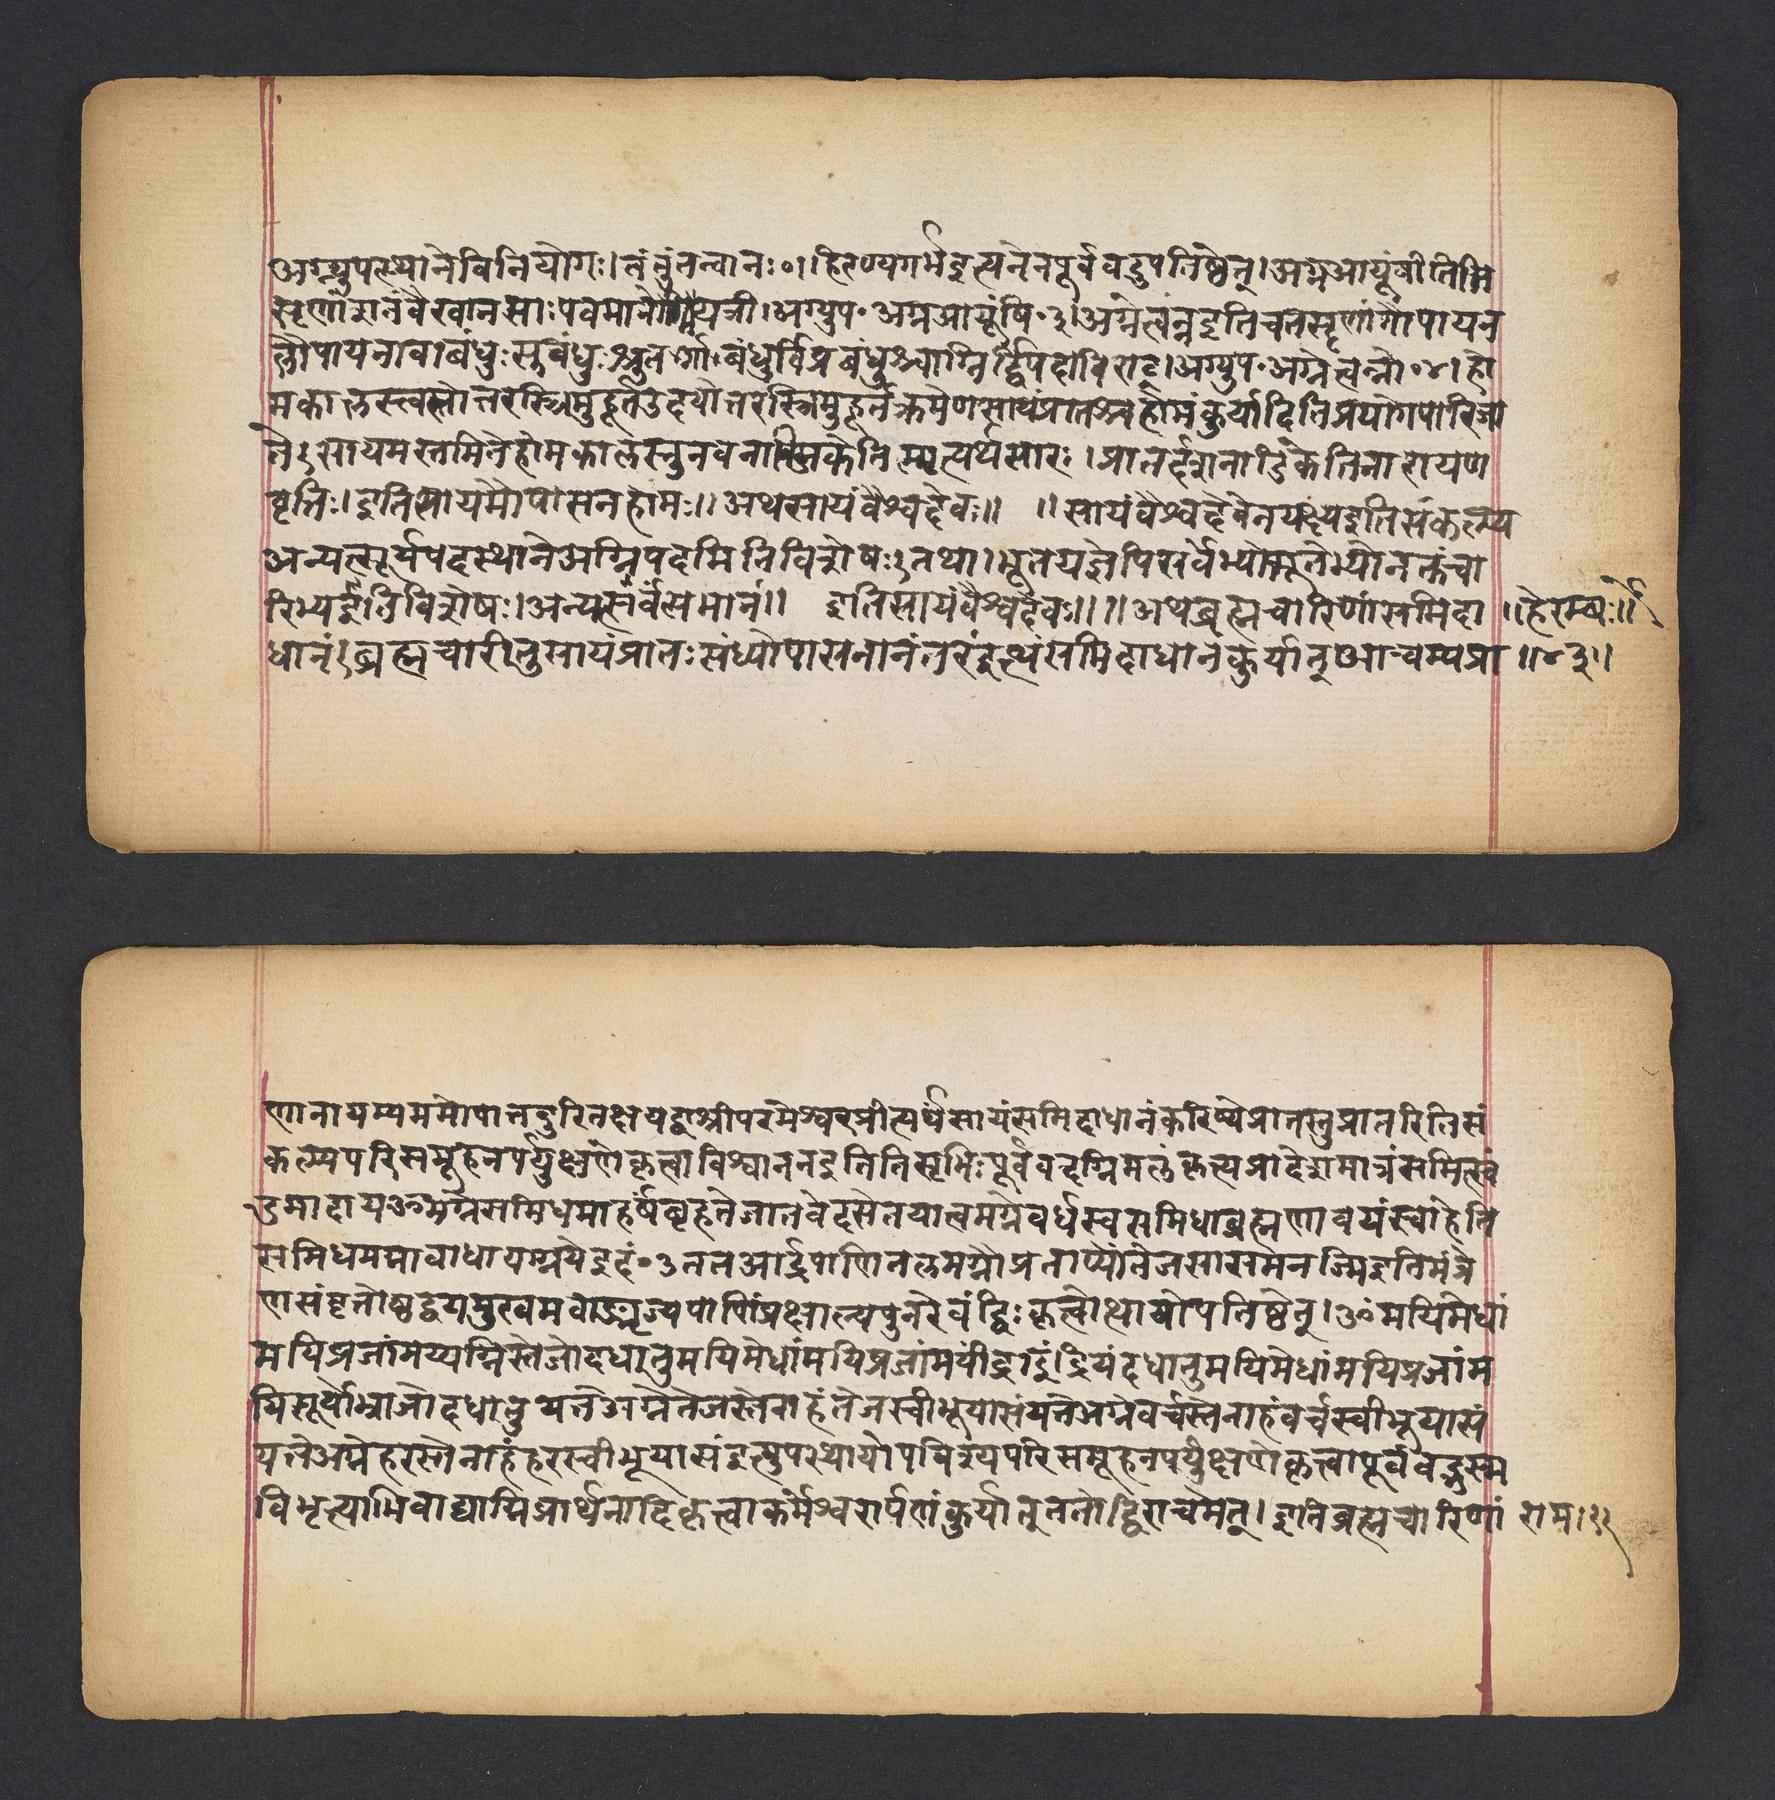 अग्न्युपस्थानेविनियोगः।तंतुंतन्वानः०१।हिरण्यगर्भइत्यनेनपूर्ववदुपतिष्ठेत्।अग्नआयूंषीतिति
सृणांशतंवैखानसाःपवमानोगायत्री।अग्युप॰अग्नआयूंषि॰३।अग्नेत्वंन्नइतिचतसृणांगौपायन
लौपायनावाबंधुःसुबंधुःश्रुतबंधुर्विप्रबंधुश्चाग्निर्द्विपदाविराट्।अग्युप॰अग्नेत्वन्नो॰४।हो
मकालस्त्वस्तोत्तरस्त्रिमुहूर्तउदयोत्तरस्त्रिमुहूर्तक्रमेणसायंप्रातश्चहोमंकुर्यादितिप्रयोगपारिजा
ते॰सायमस्तमितेहोमकालस्तुनवनाडिकेतिस्मृत्यर्थसारः।प्रातर्दशनाडिकेतिनारायण
वृत्तिः।इतिसायमौपासनहोमः॥अथसायंवैश्वदेवः॥ ॥सायंवैश्वदेवेनयक्ष्यइतिसंकल्प्य
अन्यत्सूर्यपदस्थानेअग्निपदमितिविशेषः।तथा।भूतयज्ञेपिसर्वेभ्योभूतेभ्योनक्तंचा
रिभ्यइतिविशेषः।अन्यत्सर्वंसमानं॥ इतिसायंवैश्वदेवः॥।अथब्रह्मचारिणांसमिदा ॥हेरम्बः॥
धानं।ब्रह्मचारीतुसायंप्रातःसंध्योपासनानंतरंइत्थंसमिदाधानंकुर्यात्आचम्यप्रा ॥४३॥
णानायम्यममोपात्तदुरितक्षयद्वाश्रीपरमेश्वरप्रीत्यर्थंसायंसमिदाधानंकरिष्येप्रातस्तुप्रातरितिसं
कल्प्यपरिसमूहनपर्युक्षणेकृत्वाविश्वाननइतितिसृभिःपूर्ववदग्निमलंकृत्यप्रादेशमात्रंसमित्खं
डमादायॐअग्नेसमिधमाहार्षंबृहतेजातवेदसेतयात्वमग्नेवर्धस्वसमिधाब्रह्मणावयंस्वाहेति
समिधमग्नावाधायग्नयेइदं॰उततआर्द्रपाणितलमग्नौप्रताप्यॐतेजसासमनज्मिइतिमंत्रे
णसंवृतोष्ठद्वयमुखमवाङ्मृज्यपाणिंप्रक्षाल्यपुनरेवंद्विःकृत्वोत्थायोपतिष्ठेत्।ॐमयिमेधां
मयिप्रजांमय्यग्निस्तेजोदधातुमयिमेधांमयिप्रजांमयींद्रइंद्रियंदधातुमयिमेधांमयिप्रजांम
यिसूर्योभ्राजोदधातुयत्तेअग्नेतेजस्तेनाहंतेजस्वीभूयासंयत्तेअग्नेवर्चस्तेनाहंवर्चस्वीभूयासं
यत्तेअग्नेहरस्तेनाहंहरस्वीभूयासंइत्युपस्थायोपविश्यपरिसमूहनपर्युक्षणेकृत्वापूर्ववद्भस्म
विभृत्याभिवाद्याग्निप्रार्थनादिकृत्वाकर्मेश्वरार्पणंकुर्यात्ततोद्विराचमेत्।इतिब्रह्मचारिणां राम।